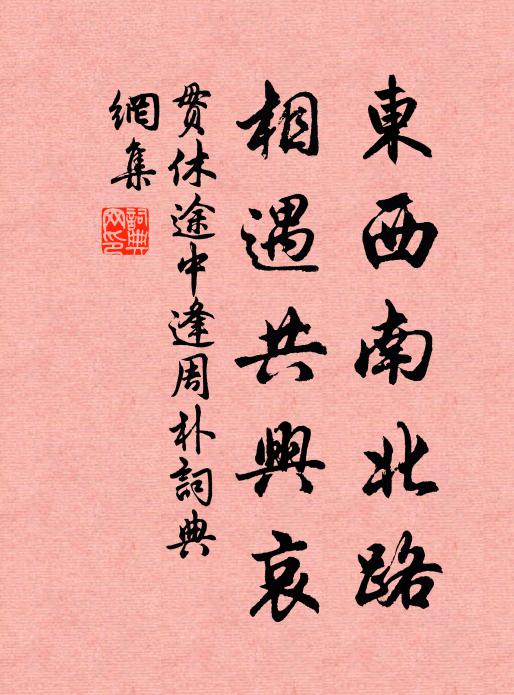 東西南北路
相遇共興哀
貫休途中逢周朴詞典
網集
詞典網印